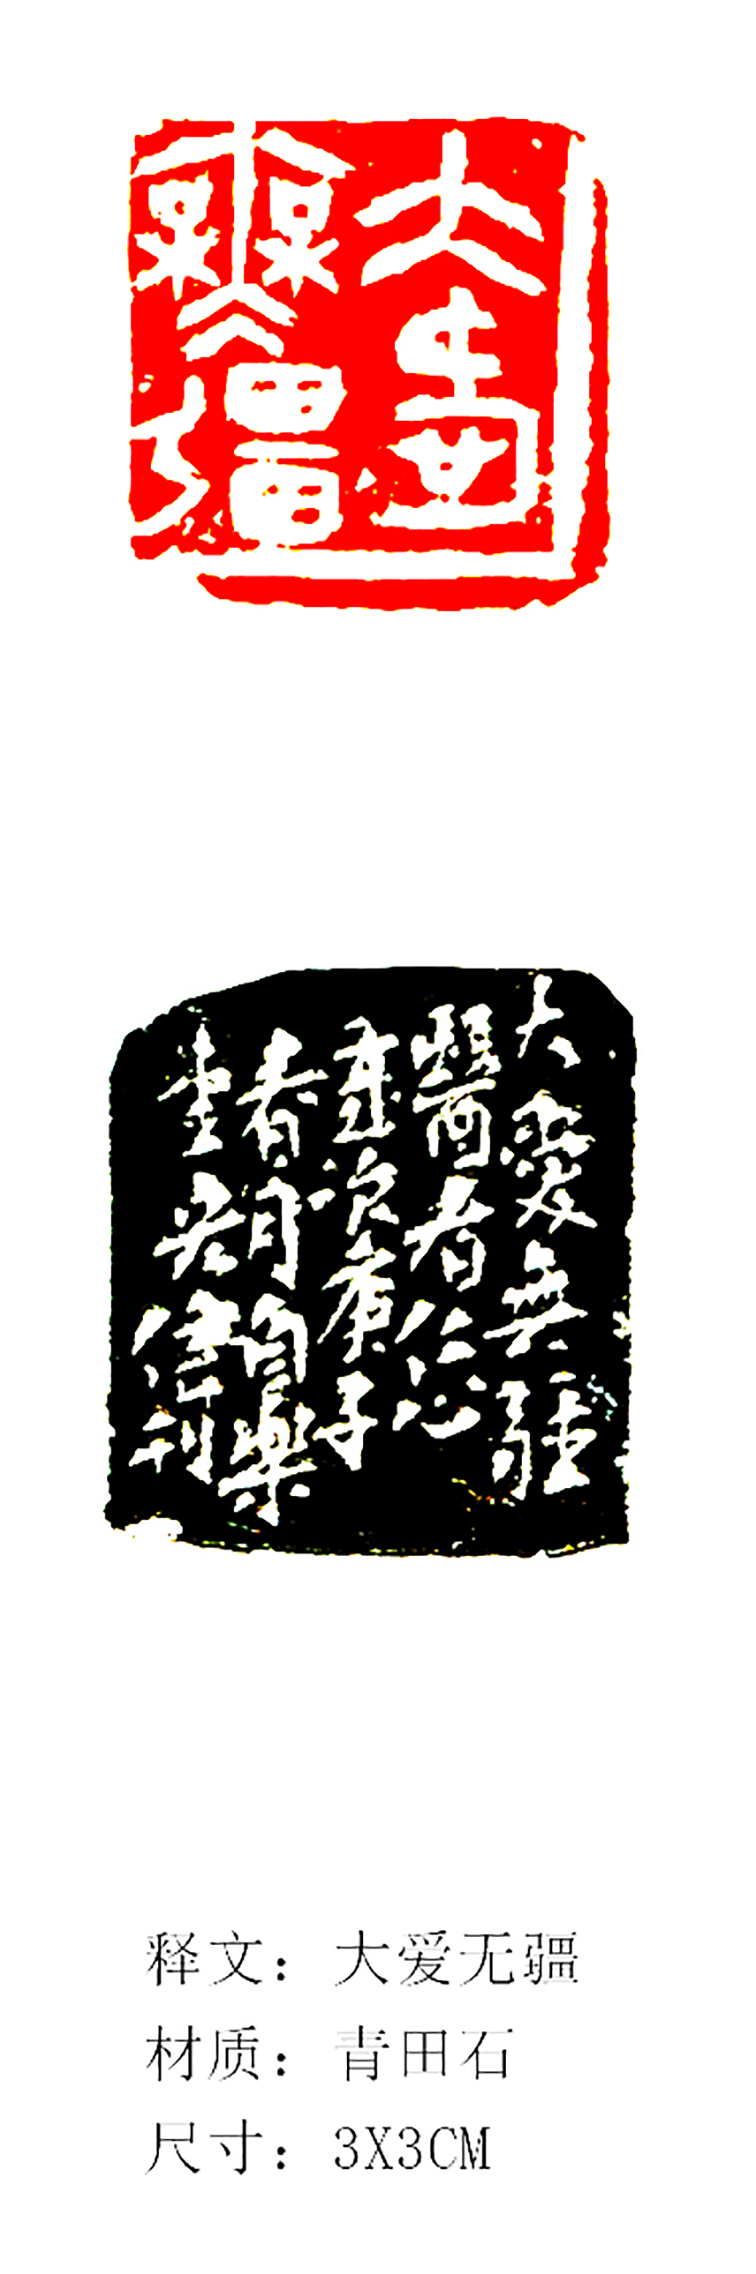 大愛無疆
大愛無疆
醫者仁心
歲次庚子
春月自樂
堂 偉刊
释文：大爱无疆
材质：青田石
尺寸：3X3CM